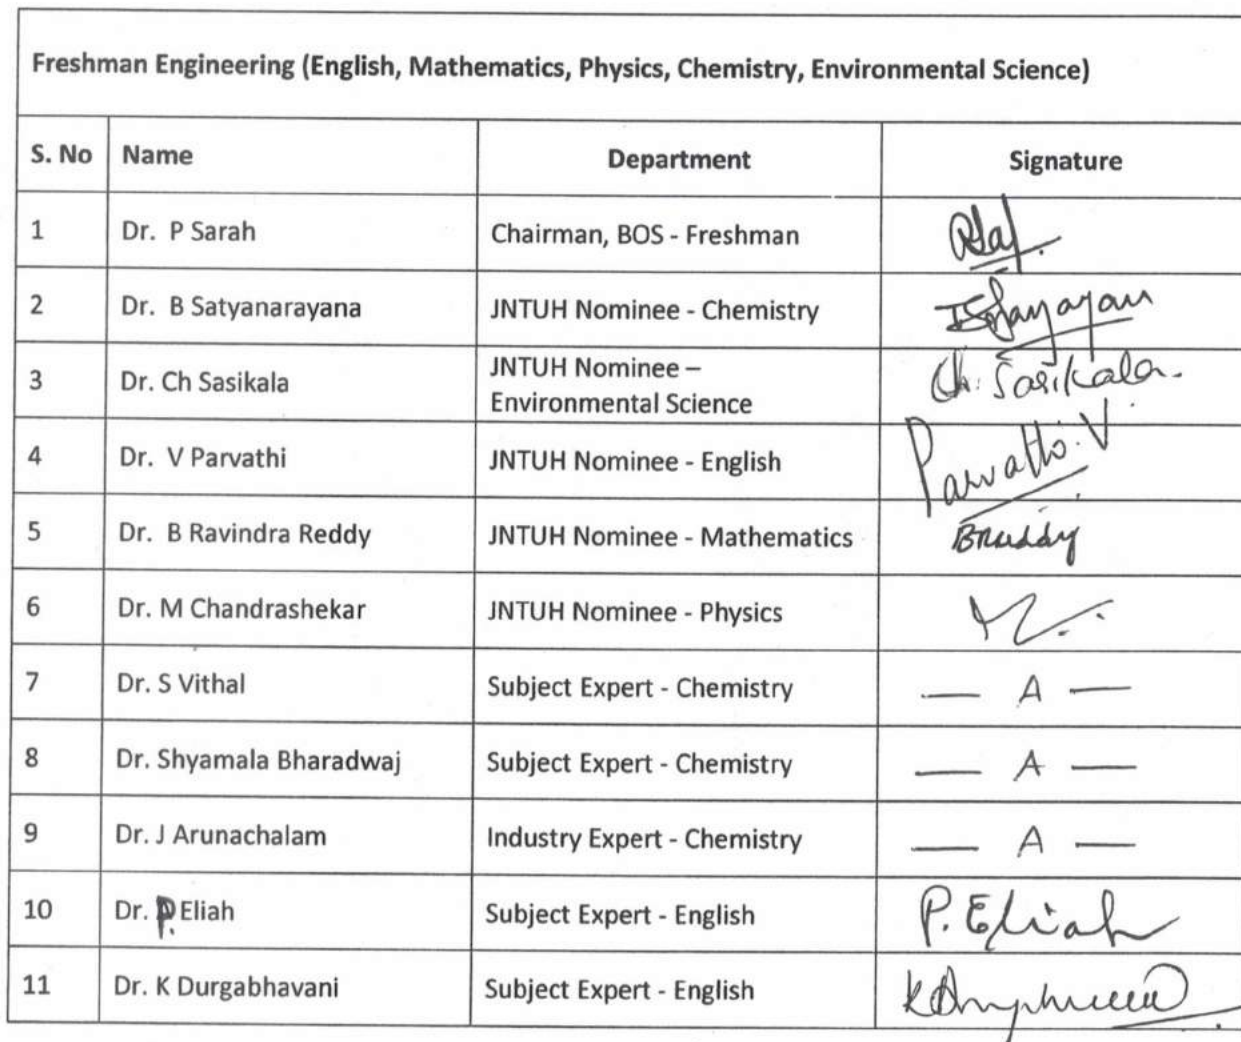 Freshman Engineering (English, Mathematics, Physics, Chemistry, Environmental Science)
S. No Name Department Signature
1 Dr. P Sarah Chairman, BOS - Freshman
2 Dr. B Satyanarayana JNTUH Nominee - Chemistry
3 Dr. Ch Sasikala JNTUH Nominee – Ch. Sasikala
Environmental Science
4 Dr. V Parvathi JNTUH Nominee - English Parvathi. V
5 Dr. B Ravindra Reddy JNTUH Nominee - Mathematics
6 Dr. M Chandrashekar JNTUH Nominee - Physics
7 Dr. S Vithal Subject Expert - Chemistry — A —
8 Dr. Shyamala Bharadwaj Subject Expert - Chemistry — A —
9 Dr. J Arunachalam Industry Expert - Chemistry — A —
10 Dr. P. Eliah Subject Expert - English P. Eliah
11 Dr. K Durgabhavani Subject Expert - English